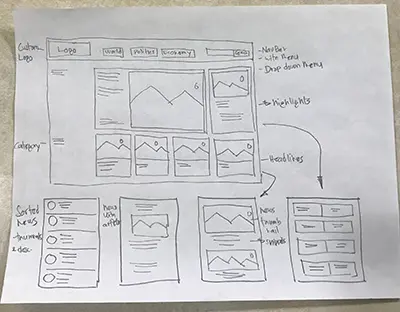 Custom
Logo
Logo
World
Politics
Economy
- NavBar
- with menu
- Drop down Menu
Highlights
Category
Headlines
Sorted
News
thumbnail
& desc
News
with
News
thumb
nail